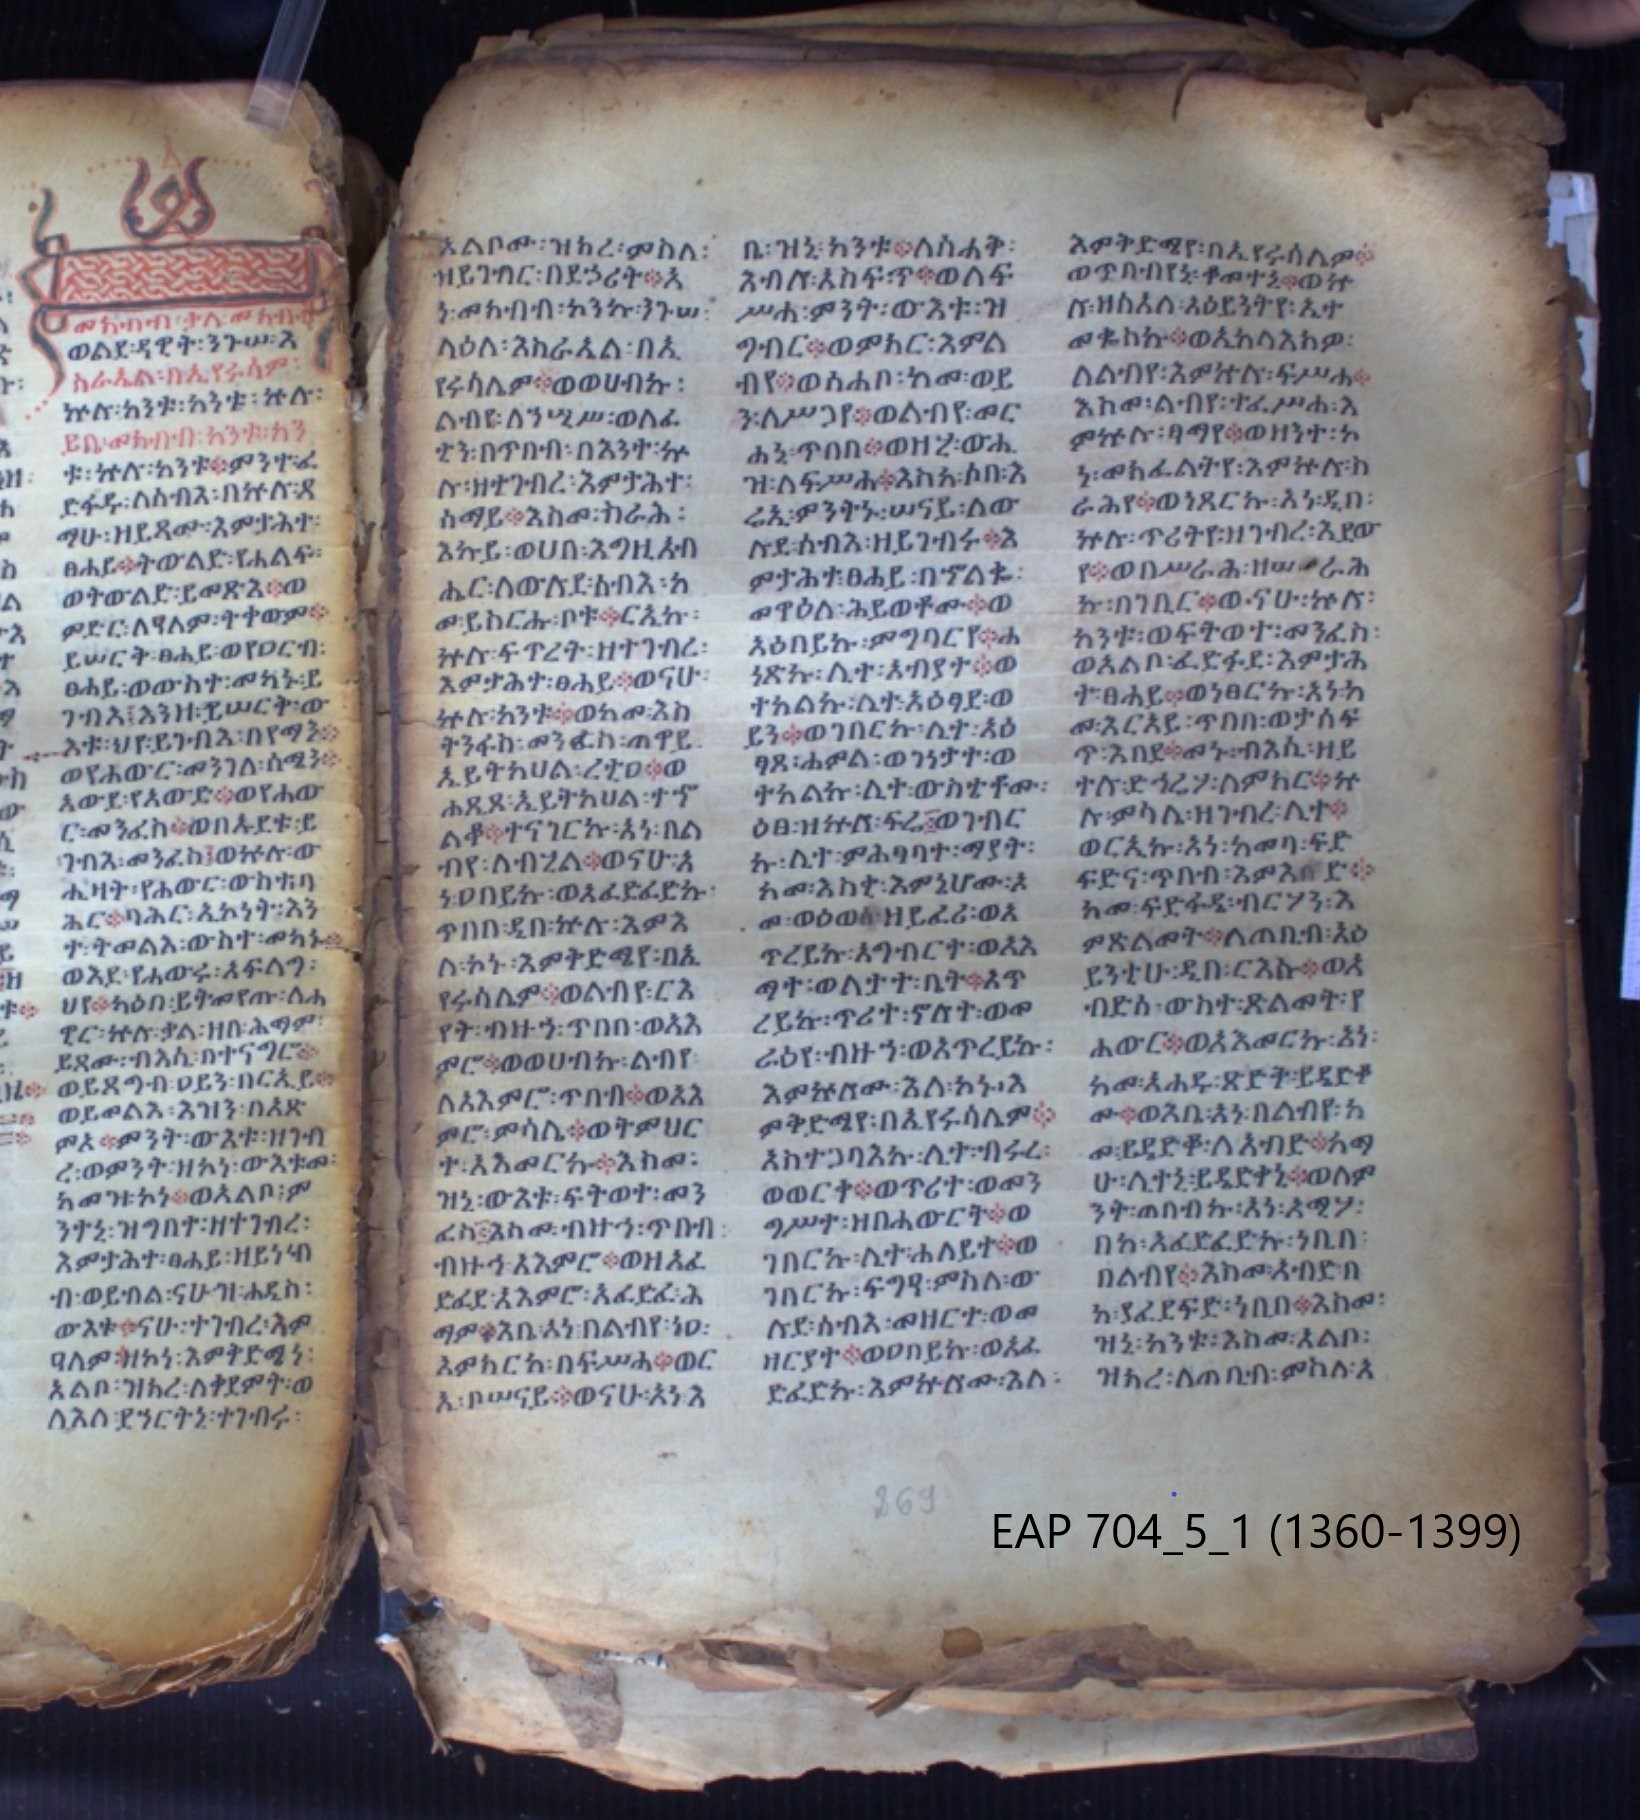 መክብብ፡ቃለ፡መክብብ
ወልደ፡ዳዊት፡ንጉሠ፡እ
ስራኤል፡በኢየሩሳም፡
ኵሉ፡ከንቱ፡ከንቱ፡ኵሉ፡
ይቤ፡መክብብ፡ከንቱ፡ከን
ቱ፡ኵሉ፡ከንቱ፨ምንተ፡ፈ
ድፋዱ፡ለሰብእ፡በኵሉ፡ጻ
ማሁ፡ዘይጻሙ፡እምታሕተ፡
ፀሐይ፨ትውልድ፡የሐልፍ፡
ወትውልድ፡ይመጽእ፨ወ
ምድር፡ለዓለም፡ትቀውም፨
ይሠርት፡ፀሐይ፡ወየዐርብ፡
ፀሐይ፡ወውስተ፡መካኑ፡ይ
ገብእ፤እንዘ፡ይሠርት፡ው
እቱ፡ህየ፡ይገብእ፡በየማን፨
ወየሐውር፡መንገለ፡ሰሜን፨
አውደ፡የአውድ፨ወየሐው
ር፡መንፈስ፨ወበኡደቱ፡ይ
ገብእ፡መንፈስ፤ወኵሉ፡ው
ሒዛት፡የሐውር፡ውስተ፡ባ
ሕር፨ባሕር፡ኢኮነት፡እን
ተ፡ትመልእ፡ውስተ፡መካኑ፨
ወእደ፡የሐውሩ፡አፍላግ፡
ህየ፨ካዕበ፡ይትመየጡ፡ለሐ
ዊር፡ኵሉ፡ቃል፡ዘበ፡ሕማም፡
ይጻሙ፡ብእሲ፡በተናግሮ፨
ወይጸግብ፡ዐይን፡በርእይ፨
ወይመልእ፡እዝን፡በአጽ
ምአ፨ምንት፡ውእቱ፡ዘገብ
ረ፡ወምንት፡ዘኮነ፡ውእቱመ፡
ከመዝ፡ኮነ፨ወአልቦ፡ም
ንተኒ፡ዝግበተ፡ዘተገብረ፡
እምታሕተ፡ፀሐይ፡ዘይነብ
ብ፡ወይብል፡ናሁ፡ዝ፡ሐዲስ፡
ውእቱ፨ናሁ፡ተገብረ፡እም
ዓለም፡ዘኮነ፡እምቅድሜነ፡
አልቦ፡ዝክረ፡ለቀደምት፡ወ
ለእለ፡ደኃርትኒ፡ተገብሩ፡
አልቦሙ፡ዝክረ፡ምስለ፡
ዝይገብር፡በደኃሪት፨አ
ነ፡መክብብ፡ኮንኩ፡ንጉሠ፡
ላዕለ፡እስራኤል፡በኢ
የሩሳሌም፨ወወሀብኩ፡
ልብየ፡ለኀሢሥ፡ወለፈ
ቲን፡በጥበብ፡በእንተ፡ኵ
ሉ፡ዘተገብረ፡እምታሕተ፡
ሰማይ፨እስመ፡ስራሕ፡
እኩይ፡ወሀበ፡እግዚአብ
ሔር፡ለውሉደ፡ሰብእ፡ከ
መ፡ይስርሑ፡ቦቱ፨ርኢኩ፡
ኵሉ፡ፍጥረት፡ዘተገብረ፡
እምታሕተ፡ፀሐይ፨ወናሁ፡
ኵሉ፡ከንቱ፨ወከመ፡እስ
ትንፋስ፡መንፈስ፡ጠዋይ፡
ኢይትከሀል፡ረቲዐ፨ወ
ሐጺጸ፡ኢይትከሀል፡ተኆ
ልቆ፨ተናገርኩ፡አነ፡በል
ብየ፡ለብሂል፨ወናሁ፡አ
ነ፡ዐበይኩ፡ወአፈድፈድኩ፡
ጥበበ፡ዲበ፡ኵሉ፡እምእ
ለ፡ኮኑ፡እምቅድሜየ፡በኢ
የሩሳሌም፨ወልብየ፡ርእ
የት፡ብዙኀ፡ጥበበ፡ወአእ
ምሮ፨ወወሀብኩ፡ልብየ፡
ለአእምሮ፡ጥበብ፨ወአእ
ምሮ፡ምሳሌ፨ወትምህር
ተ፡አእመርኩ፨እስመ፡
ዝኒ፡ውእቱ፡ፍትወተ፡መን
ፈስ፨እስመ፡ብዙኀ፡ጥበብ፡
ብዙኀ፡አእምሮ፨ወዘአፈ
ድፈደ፡አእምሮ፡አፈድፈ፡ሕ
ማም፨እቤ፡አነ፡በልብየ፡ነዐ፡
እምክርከ፡በፍሥሐ፨ወር
ኢ፡ቦሠናይ፨ወናሁ፡አነ፡እ
ቤ፡ዝኒ፡ከንቱ፨ለስሐቅ፡
እብሎ፡አስፍ፡ጥ፨ወለፍ
ሥሐ፡ምንት፡ውእቱ፡ዝ
ግብር፨ወምክር፡እምል
ብየ፨ወሰሐቦ፡ከመ፡ወይ
ን፡ለሥጋየ፨ወልብየ፡መር
ሐኒ፡ጥበበ፨ወዘሂ፡ውሒ
ዝ፡ለፍሥሐ፨እስከ፡ሶበ፡እ
ሬኢ፡ምንትኑ፡ሠናይ፡ለው
ሉደ፡ሰብእ፡ዘይገብሩ፨እ
ምታሕተ፡ፀሐይ፡በኆልቈ፡
መዋዕለ፡ሕይወቶሙ፨ወ
አዕበይኩ፡ምግባርየ፨ሐ
ነጽኩ፡ሊተ፡አብያተ፨ወ
ተከልኩ፡ሊተ፡አዕፃደ፡ወ
ይን፨ወገበርኩ፡ሊተ፡አዕ
ፃደ፡ሐምል፡ወገነታተ፡ወ
ተከልኩ፡ሊተ፡ውስቴቶሙ፡
ዕፀ፡ዝኵሉ፡ፍሬ፨ወገብር
ኩ፡ሊተ፡ምሕፃባተ፡ማያት፡
ከመ፡እስቲ፡እምኔሆሙ፡ኦ
መ፡ወዕወፅ፡ዘይፈሪ፡ወአ
ጥረይኩ፡አግብርተ፡ወአእ
ማተ፡ወልታተ፡ቤት፨አጥ
ረይኩ፡ጥሪተ፡ኖሎተ፡ወመ
ራዕየ፡ብዙኀ፡ወአጥረይኩ፡
እምኵሎሙ፡እለ፡ኮኑ፡እ
ምቅድሜየ፡በኢየሩሳሌም፨
አስተጋባእኩ፡ሊተ፡ብሩረ፡
ወወርቀ፨ወጥሪተ፡ወመን
ግሥተ፡ዘበሐውርት፨ወ
ገበርኩ፡ሊተ፡ሐለይተ፨ወ
ገበርኩ፡ፍግዓ፡ምስለ፡ው
ሉደ፡ሰብእ፡መዘርተ፡ወመ
ዘርያተ፨ወዐበይኩ፡ወአፈ
ድፈድኩ፡እምኵሎሙ፡እለ፡
እምቅድሜየ፡በኢየሩሳሌም፨
ወጥበብየኒ፡ቆመተኒ፨ወኵ
ሉ፡ዘስእለ፡አዕይንትየ፡ኢተ
መቈስኩ፨ወኢከላእክዎ፡
ለልብየ፡እምኵሉ፡ፍሥሐ፨
እስመ፡ልብየ፡ተፈሥሐ፡እ
ምኵሉ፡ፃማየ፨ወዘንተ፡ኮ
ነ፡መክፈልትየ፡እምኵሉ፡ስ
ራሕየ፨ወነጸርኩ፡አነ፡ዲበ፡
ኵሉ፡ጥሪትየ፡ዘገብረ፡እደው
የ፨ወበሥራሕ፡ዘሠራሕ
ኩ፡በገቢር፨ወ፡ናሁ፡ኵሉ፡
ከንቱ፡ወፍትወተ፡መንፈስ፡
ወአልቦ፡ፈድፋደ፡እምታሕ
ተ፡ፀሐይ፨ወነፀርኩ፡አነ፡ከ
መ፡እርአይ፡ጥበበ፡ወታሰፍ
ጥ፡እበደ፨መኑ፡ብእሲ፡ዘይ
ተሉ፡ድኅሬሃ፡ለምክር፨ኵ
ሉ፡ምሳሌ፡ዘገብረ፡ሊተ፨
ወርኢኩ፡አነ፡ከመባ፡ፍድ
ፍድና፡ጥበብ፡እምእበድ፨
ከመ፡ፍድፋዴ፡ብርሃን፡እ
ምጽልመት፨ለጠቢብ፡አዕ
ይንቲሁ፡ዲበ፡ርእሱ፨ወአ
ብድሰ፡ውስተ፡ጽልመት፡የ
ሐውር፨ወአእመርኩ፡አነ፡
ከመ፡አሐዱ፡ጽድት፡ይዴድቆ
ሙ፨ወእቤ፡አነ፡በልብየ፡ከ
መ፡ይዴድቆ፡ለአብድ፨ከማ
ሁ፡ሊተኒ፡ይዴድቀኒ፨ወለም
ንት፡ጠበብኩ፡አነ፡አሜሃ፡
በከ፡አፈድፈድኩ፡ነቢበ፡
በልብየ፨እስመ፡አብድ፡በ
ከ፡ያፈደፍድ፡ነቢበ፨እስመ፡
ዝኒ፡ከንቱ፡እስመ፡አልቦ፡
ዝክረ፡ለጠቢብ፡ምስለ፡አ
269
EAP 704_5_1 (1360-1399)